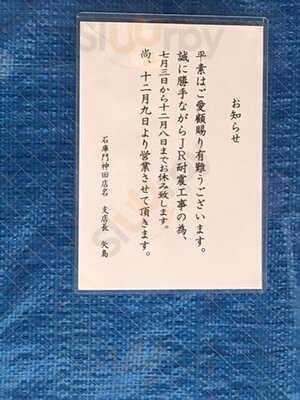 お知らせ
平素はご愛顧賜り有難うございます。
誠に勝手ながらJR耐震工事の為、
七月三日から十二月八日までお休み致します。
尚、十二月九日より営業させて頂きます。
石庫門神田店名 支店長 矢島